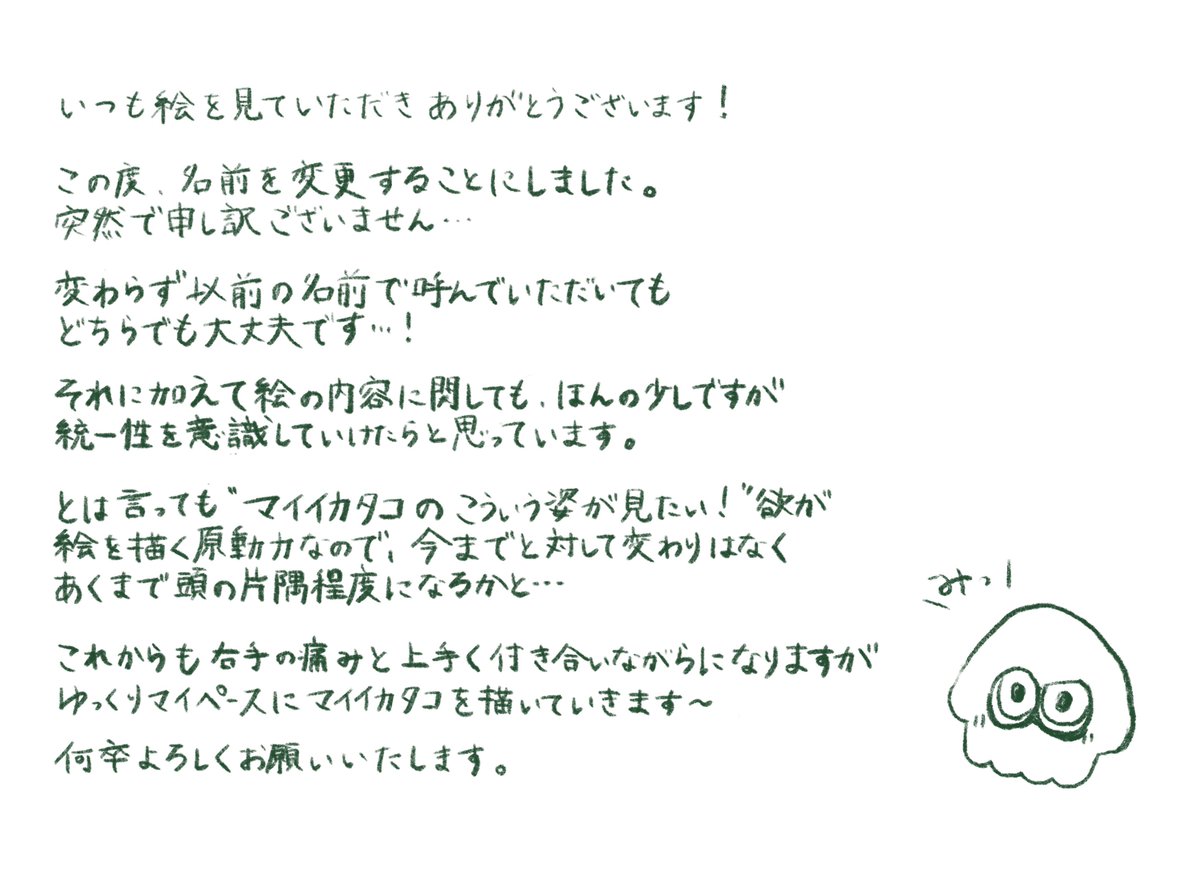 いつも絵を見ていただきありがとうございます！
この度、名前を変更することにしました。
突然で申し訳ございません…
変わらず以前の名前で呼んでいただいても
どちらでも大丈夫です…！
それに加えて絵の内容に関しても、ほんの少しですが
統一性を意識していけたらと思っています。
とは言っても"マイイカタコのこういう姿が見たい！"欲が
絵を描く原動力なので、今までと対して変わりはなく
あくまで頭の片隅程度になるかと…
これからも右手の痛みと上手く付き合いながらになりますが
ゆっくりマイペースにマイイカタコを描いていきます～
何卒よろしくお願いいたします。
みっ！